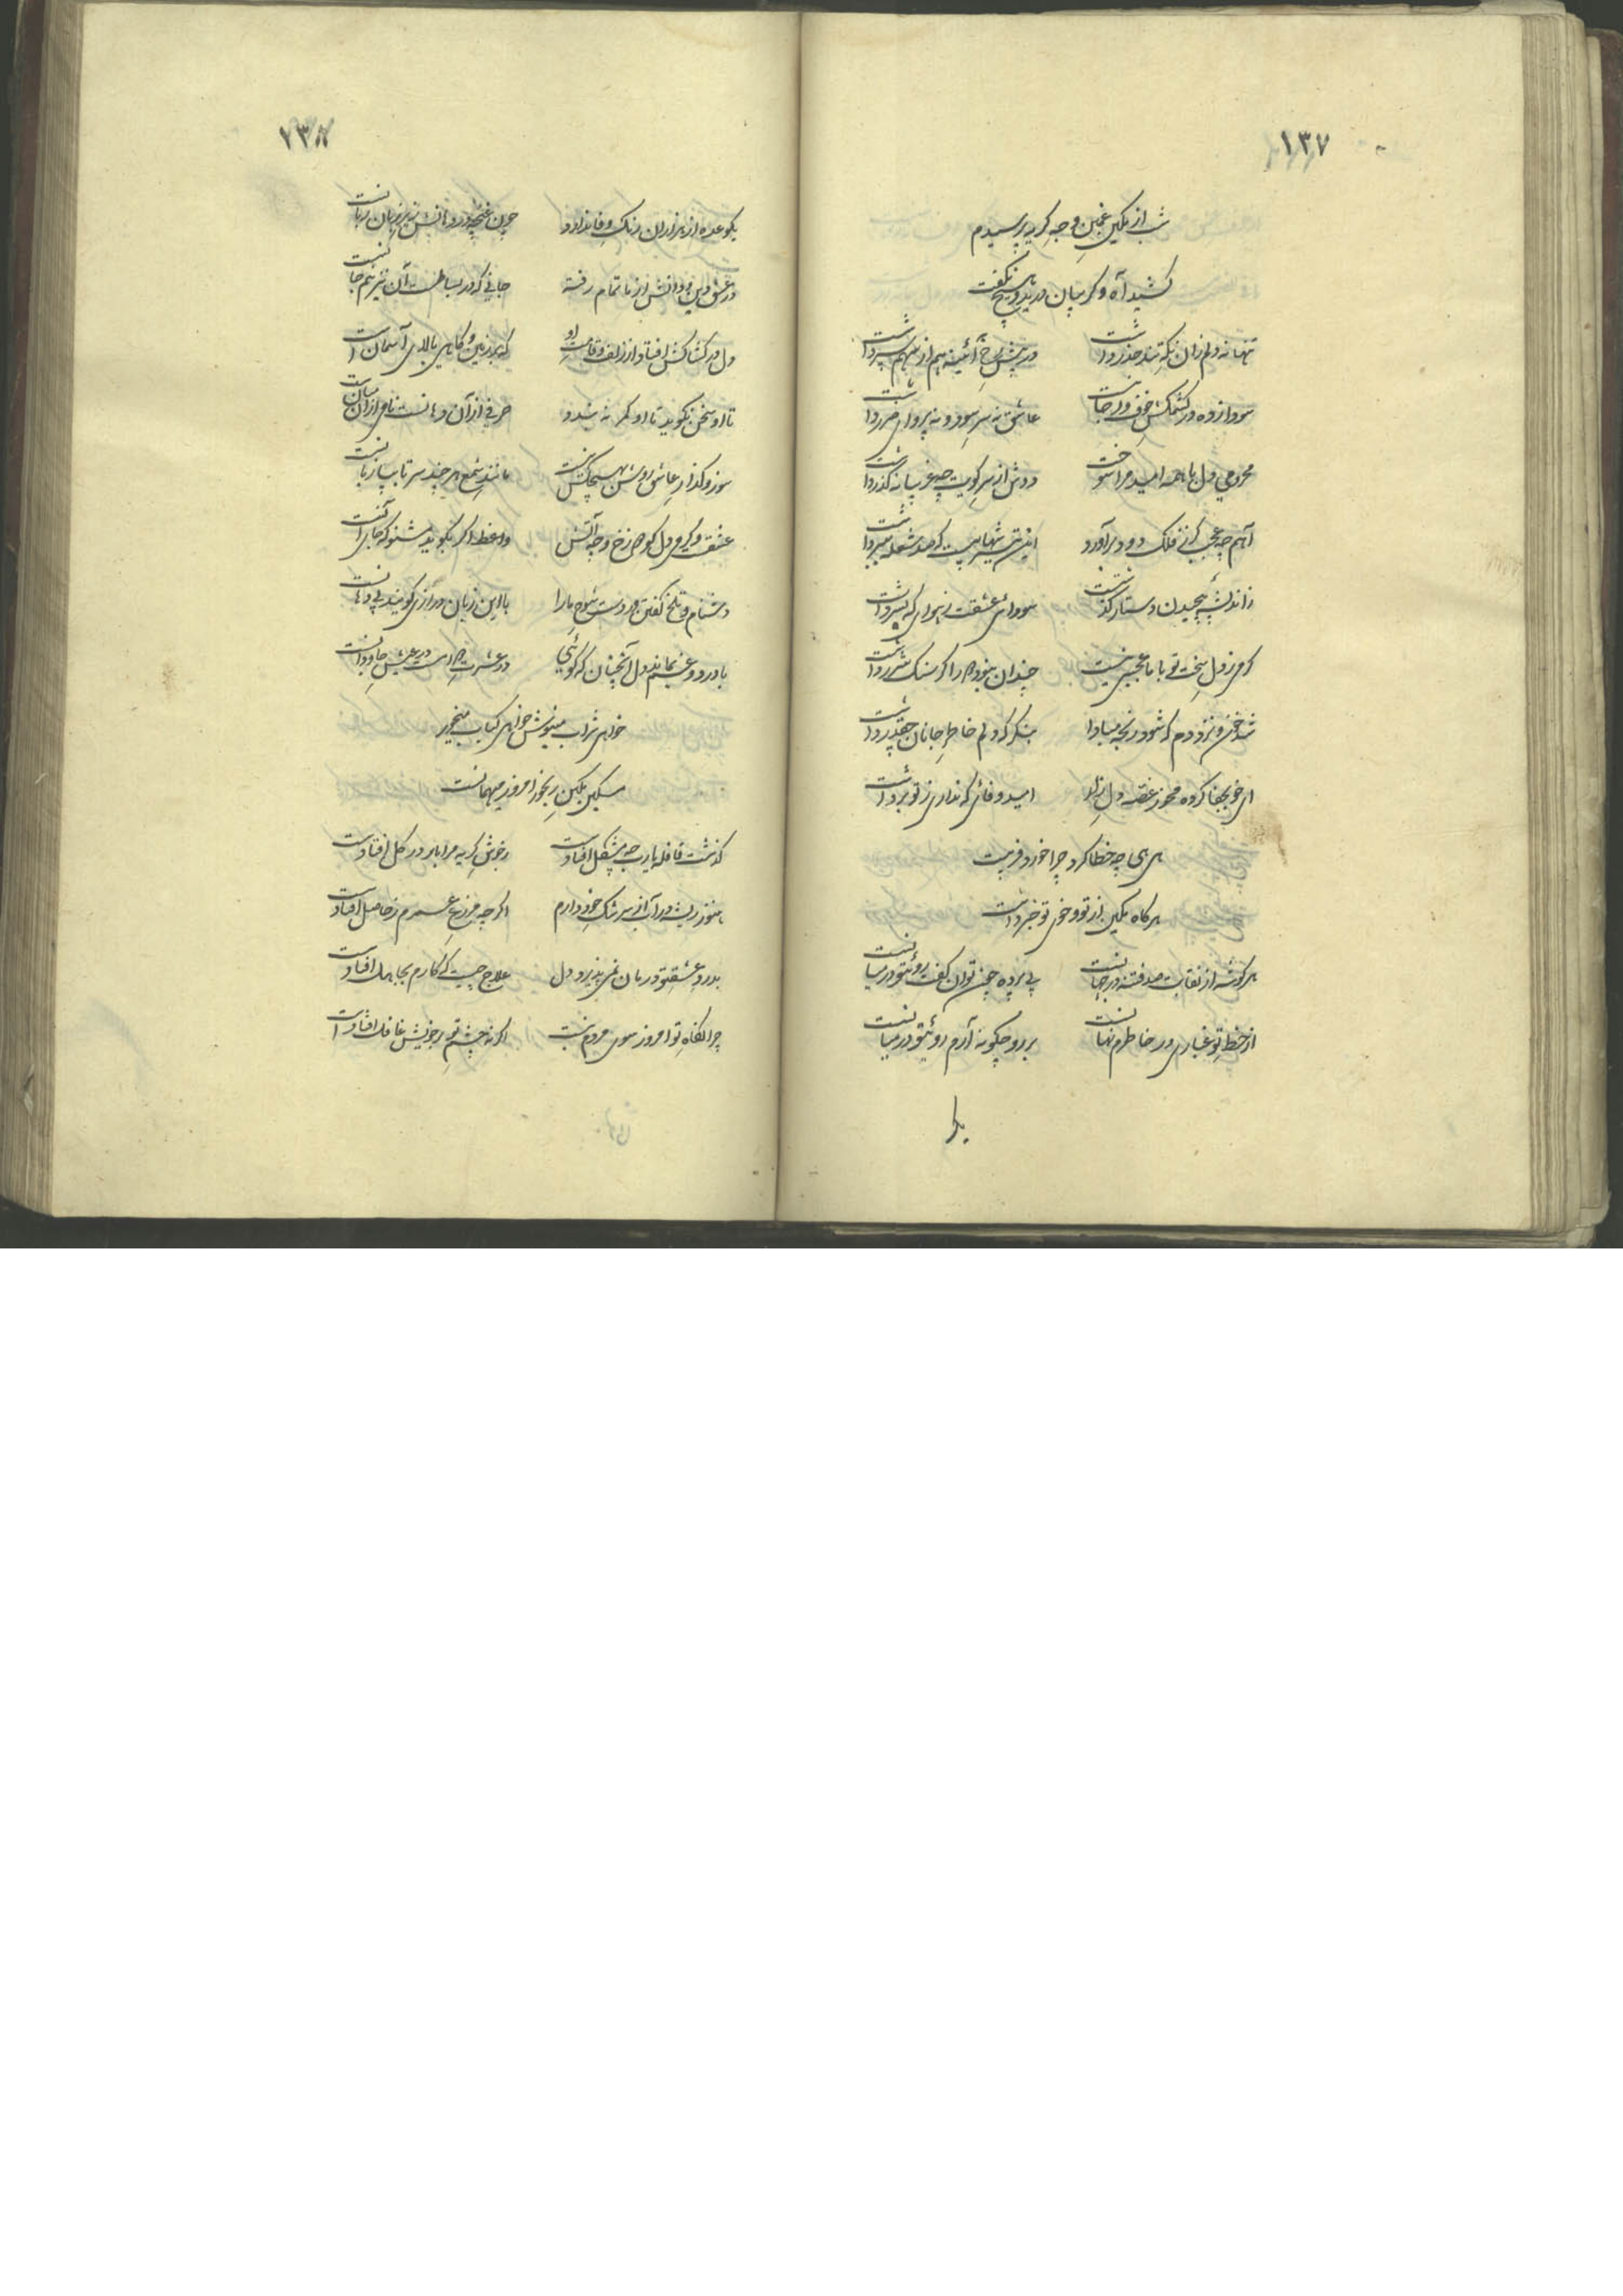 ۱۳۷
شب از بکین غمین وجه گریه پرسیدم
کشید آه و گریبان درید و هیچ نگفت
تنها نه دلم زان نگه تند حذر داشت
در پیش رخ آئینه هم از سهم سپر داشت
سودا زده در کشمکش خوف و رجا نیست
عاشق نه سر سود و نه پروای ضرر داشت
محرومی دل با همه امید مرا سوخت
دوش از سر کویت چه غریبانه گذر داشت
آهم چه عجب گر ز فلک دود برآورد
این تیر شهابیست که صد شعله بپر داشت
ز اندیشه پیچیدن دستار گذشت
سودای عشقت بهوای که بسر داشت
گرمی ز دل سخت تو با ما عجبی نیست
چندان نبود دور اگر سنگ شرر داشت
شد خون و نزد دم که شود رنجه مبادا
بنگر که دلم خاطر جانان چقدر داشت
ای خو بجفا کرده مخور غصه دل زار
امید وفائی که نداری ز تو برداشت
هی هی چه خطا کرد چرا خورد فریبت
هرگاه بکین از تو و خوی تو خبر داشت
هر گوشه از نقابت صد فتنه در جهانست
بی پرده چون توان گفت روئیتو در میانست
از خط تو غباری در خاطرم نهانست
بر رو چگونه آرم روئیتو در میانست
۱۳۸
یکوعده از هزاران رنگ وفا ندارد
چون غنچه در دهانش زیر زبان زبانست
در عشق دین و دانش از ما تمام رفته
جانی که در بساطست آن نیز نیم جانست
دل در کشاکش افتاد از زلف و قامت او
گه بر زمین و گاهی بالای آسمانست
تا او سخن نگوید تا او کمر نه بندد
حرفی از آن دهانست نامی از آن میانست
سوز و گداز عاشق روشن بهیچکس نیست
مانند شمع هر چند سر تا بپا زبانست
عشقت و گرمی دل کو دوزخ و چه آتش
واعظ اگر بگوید مشنو که جای آنست
دشنام و تلخ گفتن در دست شوخ ما را
با این زبان درازی گویند بی دهانست
با درد و غم بماند دل آنچنان که گوئی
در عشرت مدامست در عیش جاودانست
خواهی شراب مینوش خواهی کباب میخور
مسکین بکین رنجور امروز میهمانست
گذشت قافله یا رب چه مشکل افتادست
ز جوش گریه مرا بار در گل افتادست
هنوز ریشه در آب از سرشک خود دارم
اگر چه مزرع عمرم ز حاصل افتادست
بدرد عشق تو درمان نمی پذیرد دل
علاج چیست که کارم بجاهل افتادست
چرا نگاه تو امروز سوی مردم نیست
اگر نه چشم تو بر خویش غافل افتادست